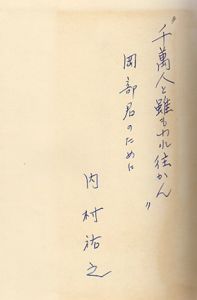 "千萬人と雖もわれ往かん"
岡部君のために
内村祐之